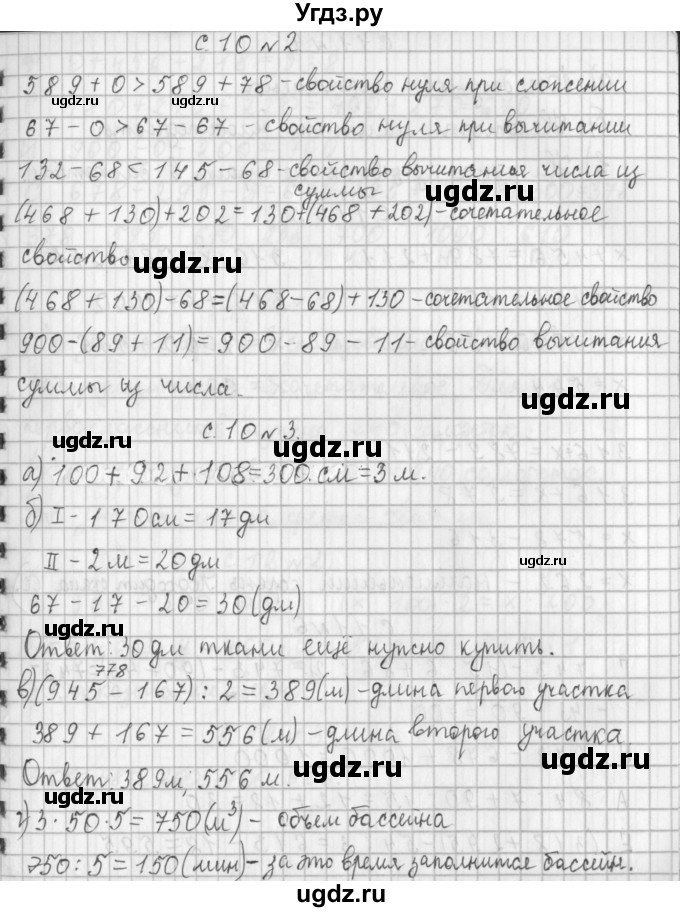 Угдз.ру
с. 10 №2
589+0>589+78 - свойство нуля при сложении
67-0>67-67 - свойство нуля при вычитании
132-68<145-68 - свойство вычитания числа из
суммы
(468+130)+202=130+(468+202) - сочетательное
свойство
(468+130)-68=(468-68)+130 - сочетательное свойство
900-(89+11)=900-89-11 - свойство вычитания
суммы из числа.
с. 10 №3.
а) 100+92+108=300 см=3 м.
б) I - 170 см = 17 дм
II - 2 м = 20 дм
67-17-20=30 (дм)
Ответ: 30 дм ткани ещё нужно купить.
778
в) (945-167):2=389(м) - длина первого участка
389+167=556(м) - длина второго участка
Ответ: 389 м; 556 м.
г) 3·50·5=750(м³) - объем бассейна
750:5=150(мин) - за это время заполнится бассейн.
ugdz.ru
ugdz.ru
ugdz.ru
ugdz.ru
ugdz.ru
ugdz.ru
ugdz.ru
ugdz.ru
ugdz.ru
ugdz.ru
ugdz.ru
ugdz.ru
ugdz.ru
ugdz.ru